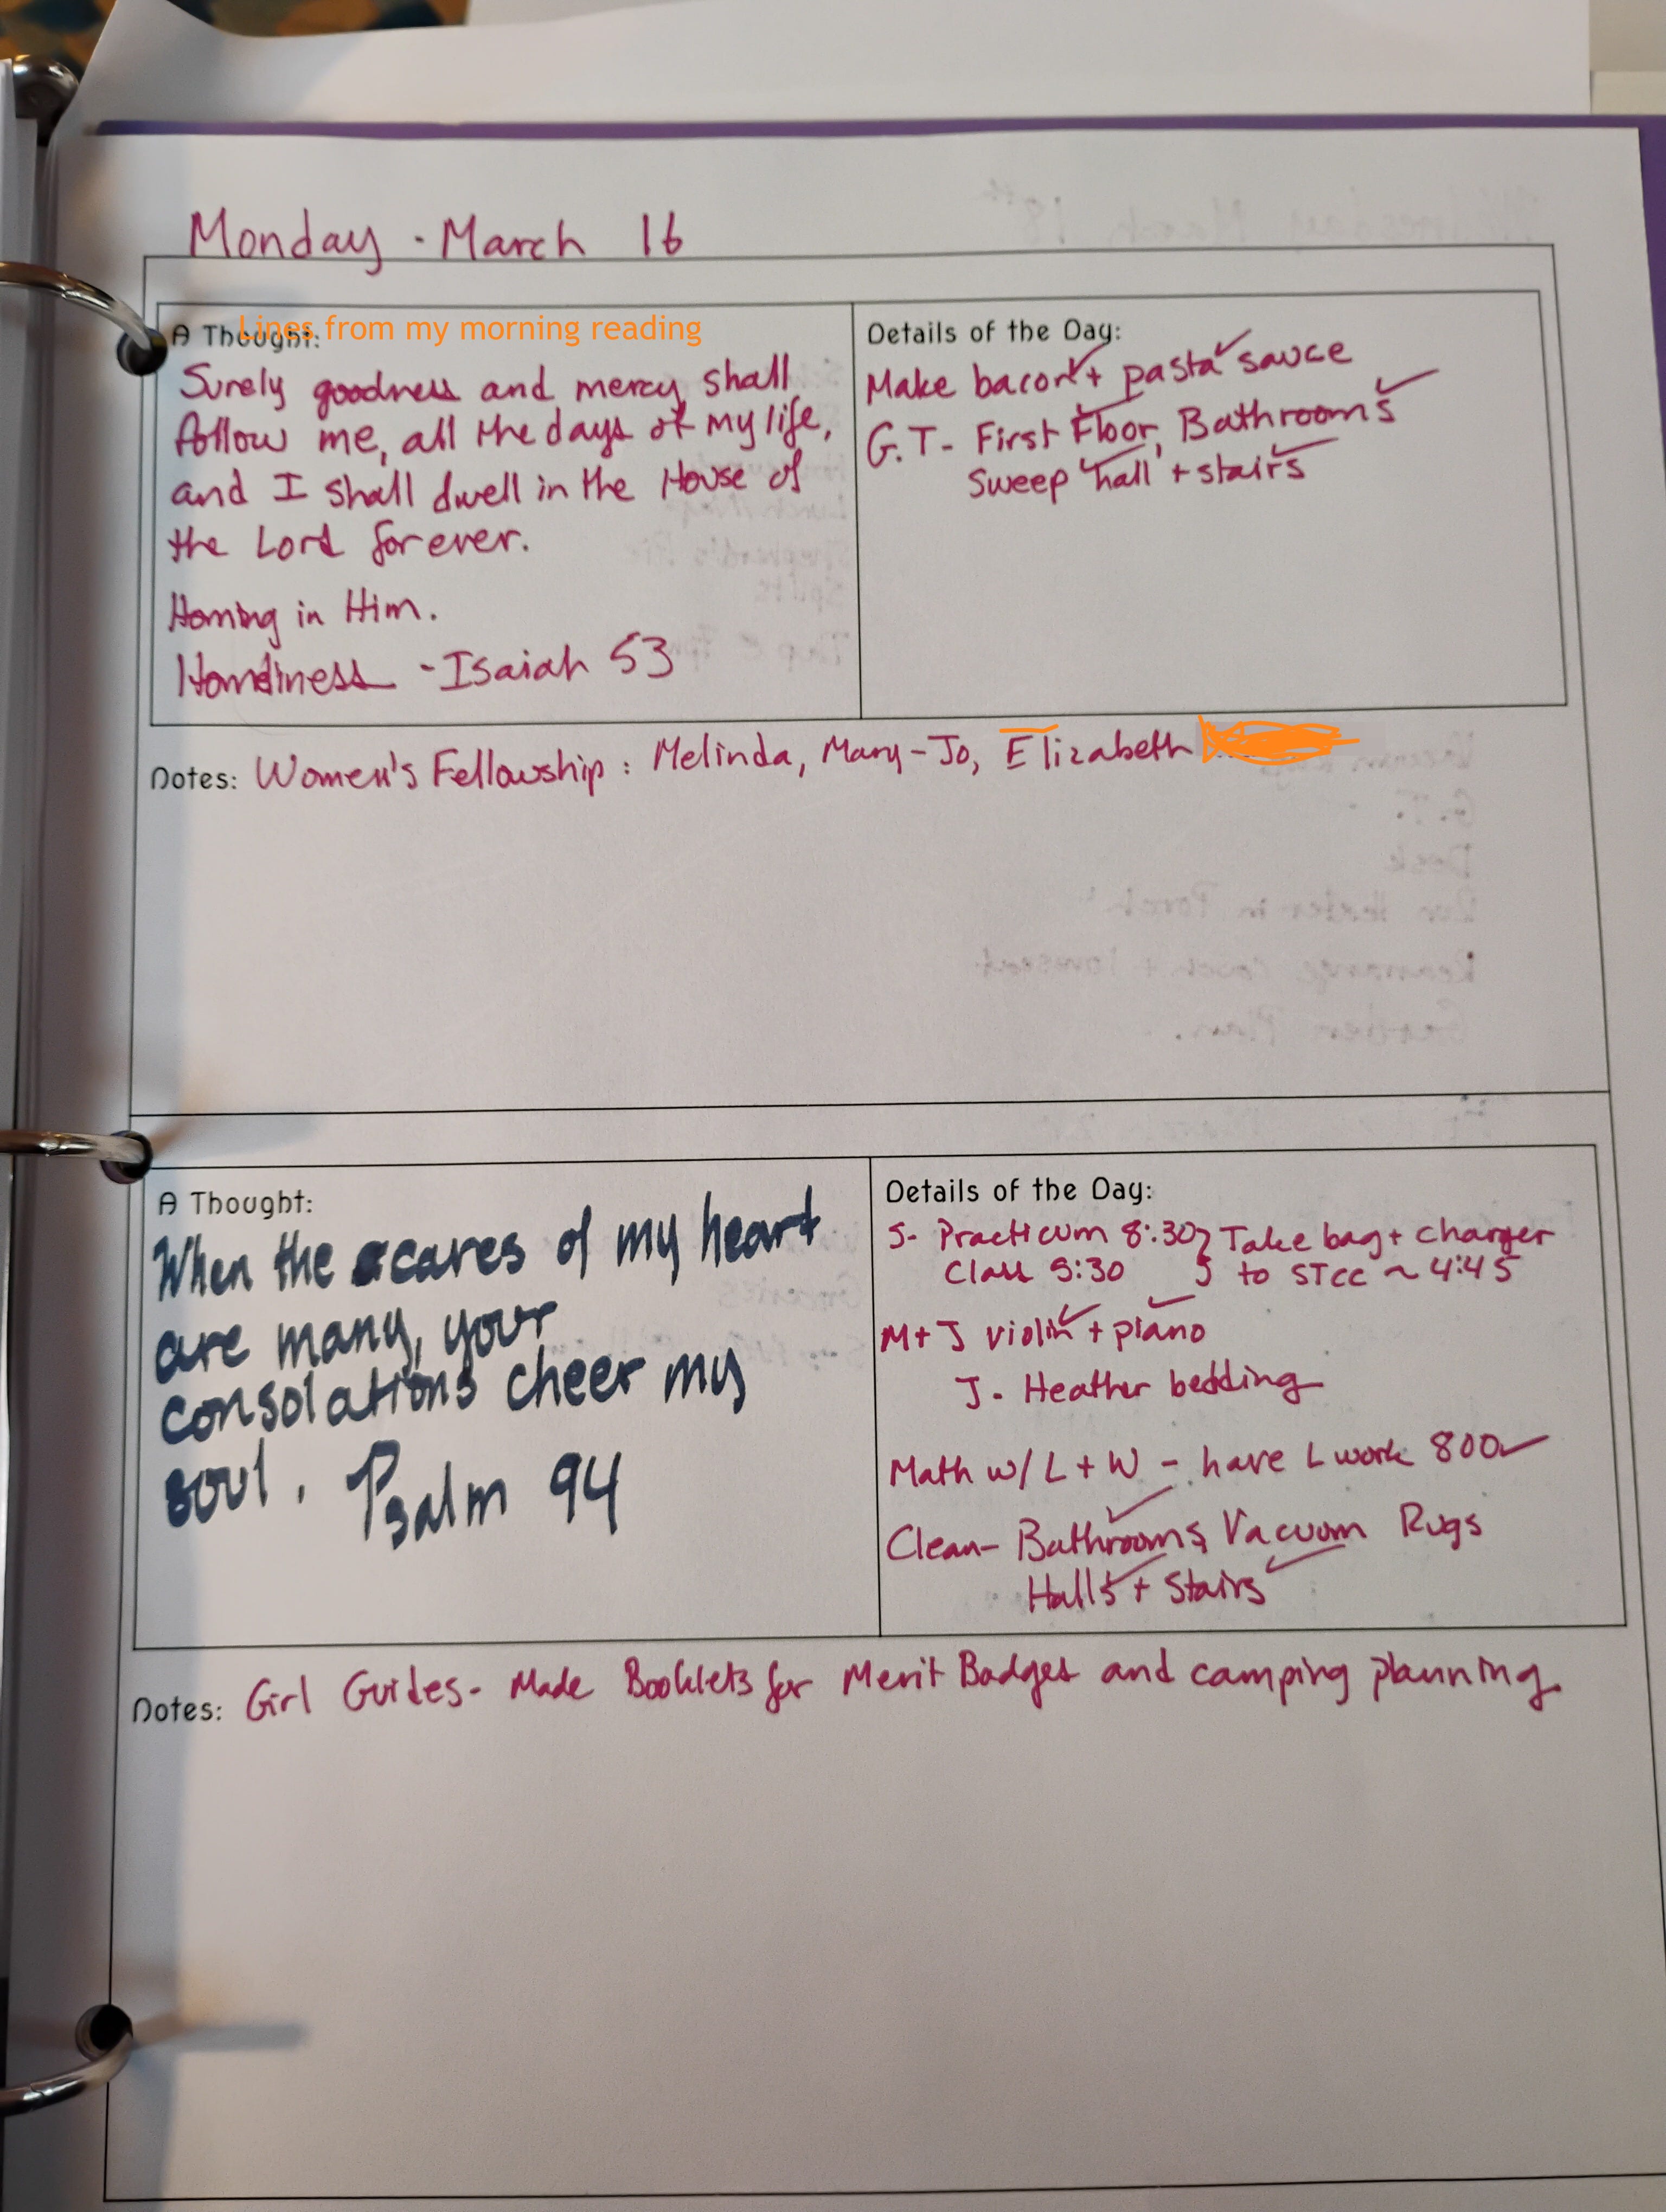 Monday - March 16
A Thought:
Lines from my morning reading
Surely goodness and mercy shall
follow me, all the days of my life,
and I shall dwell in the House of
the Lord forever.
Homing in Him.
Homeliness - Isaiah 53
Details of the Day:
Make bacon + pasta sauce
G.T - First Floor, Bathrooms
Sweep hall + stairs
Notes: Women's Fellowship: Melinda, Mary-Jo, Elizabeth
A Thought:
When the cares of my heart
are many, your
consolations cheer my
soul. Psalm 94
Details of the Day:
S- Practicum 8:30 } Take bag + charger
Class 5:30 } to STCC ~ 4:45
M + J violin + piano
J - Heather bedding
Math w/ L + W - have L work 800
Clean - Bathrooms, Vacuum Rugs
Halls + Stairs
Notes: Girl Guides - Made Booklets for Merit Badges and camping planning.